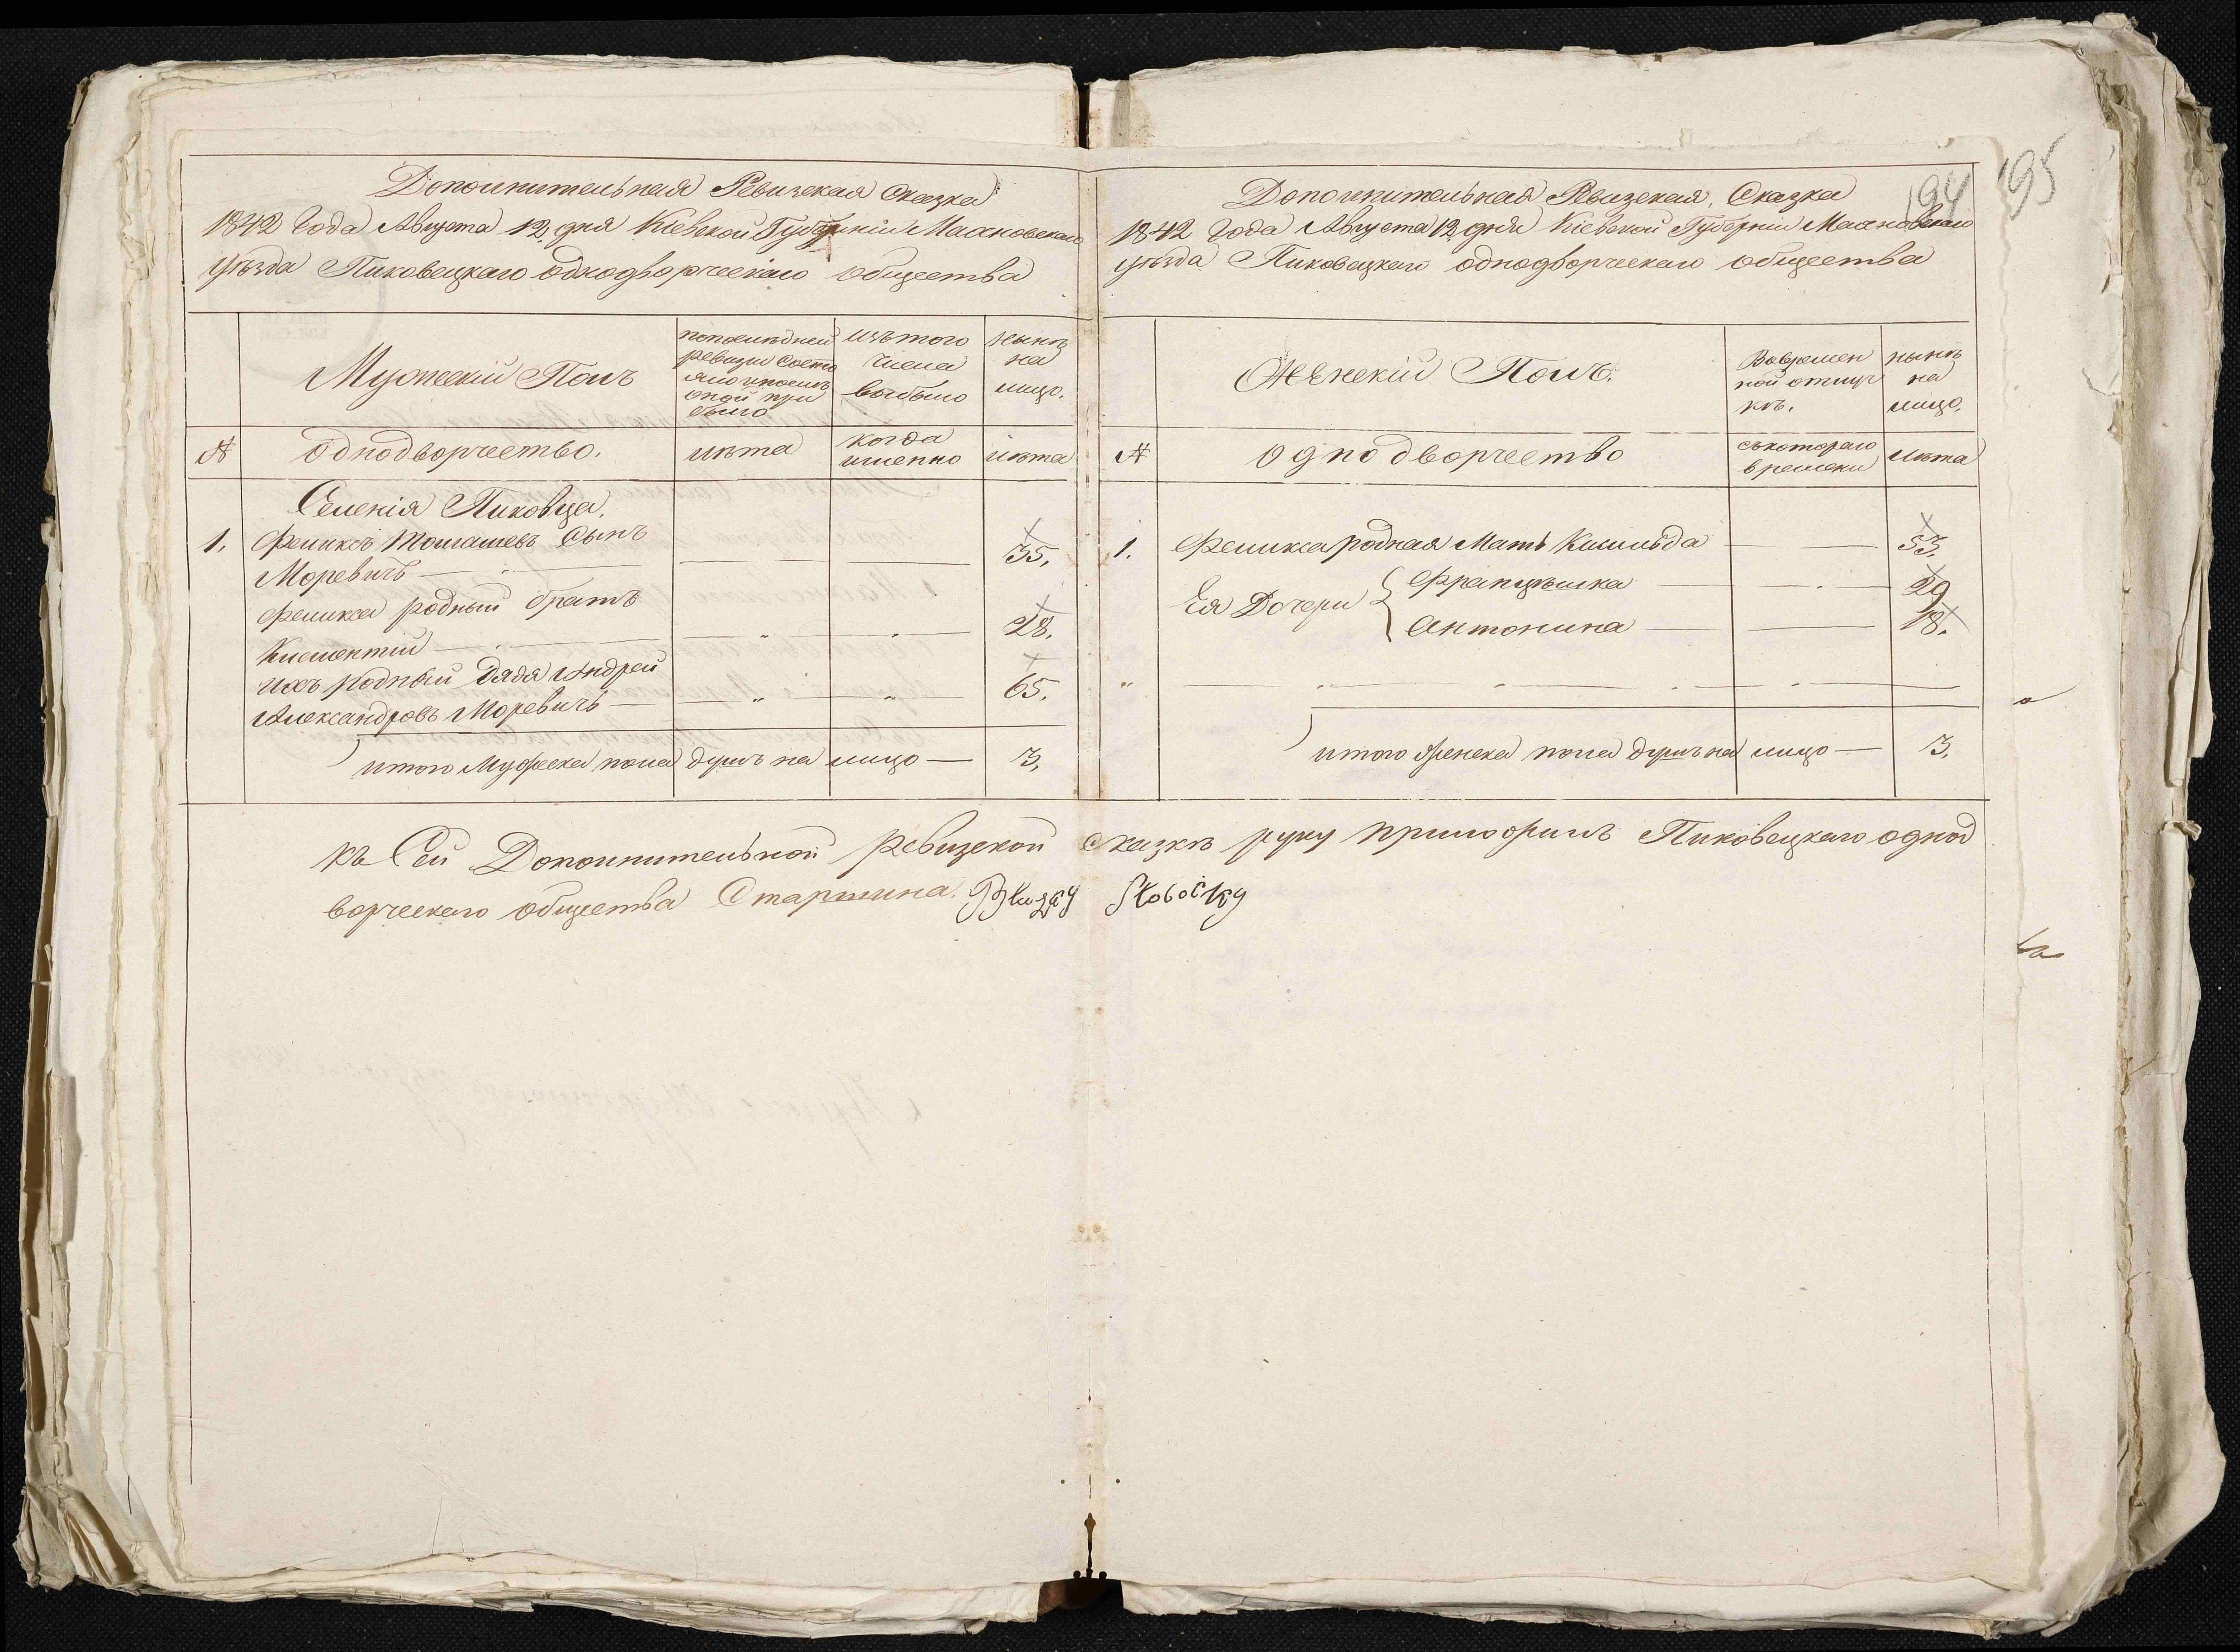 Дополнительная Ревизская Сказка
1842 Года Августа 12 дня Кіевской Губерніи Махновскаго
уѣзда Пиковецкаго однодворческаго общества
Мужескій Полъ
по последней ревизіи состояло и после оной прибыло
изъ того числа выбыло
Нынѣ на лицо.
№
Однодворчество.
лѣта
когда именно
лѣта
Селенія Пиковца.
1. Феликсъ Томашевъ Сынъ
Моревичъ — 35.
Феликса родный братъ
Климентій — 28.
Ихъ родный Дядя Андрей
Александровъ Моревичъ — 65.
итого Мужеска пола душъ на лицо — 3,
194 195
Дополнительная Ревизская, Сказка
1842 Года Августа 12 дня Кіевской Губерніи Махновскаго
уѣзда Пиковецкаго однодворческаго общества
Женскій Полъ.
Во временной отлучкѣ.
нынѣ на лицо.
№
Однодворчество
съ котораго времени
лѣта
1. Феликса родная Мать Касильда — 53.
Ея Дочери { Францѣшка — 29
Антонина — 18.
итого Женска пола душъ на лицо — 3,
Къ Сей Дополнительной ревизской сказкѣ руку приложилъ Пиковецкаго однод
ворческаго общества Старшина.